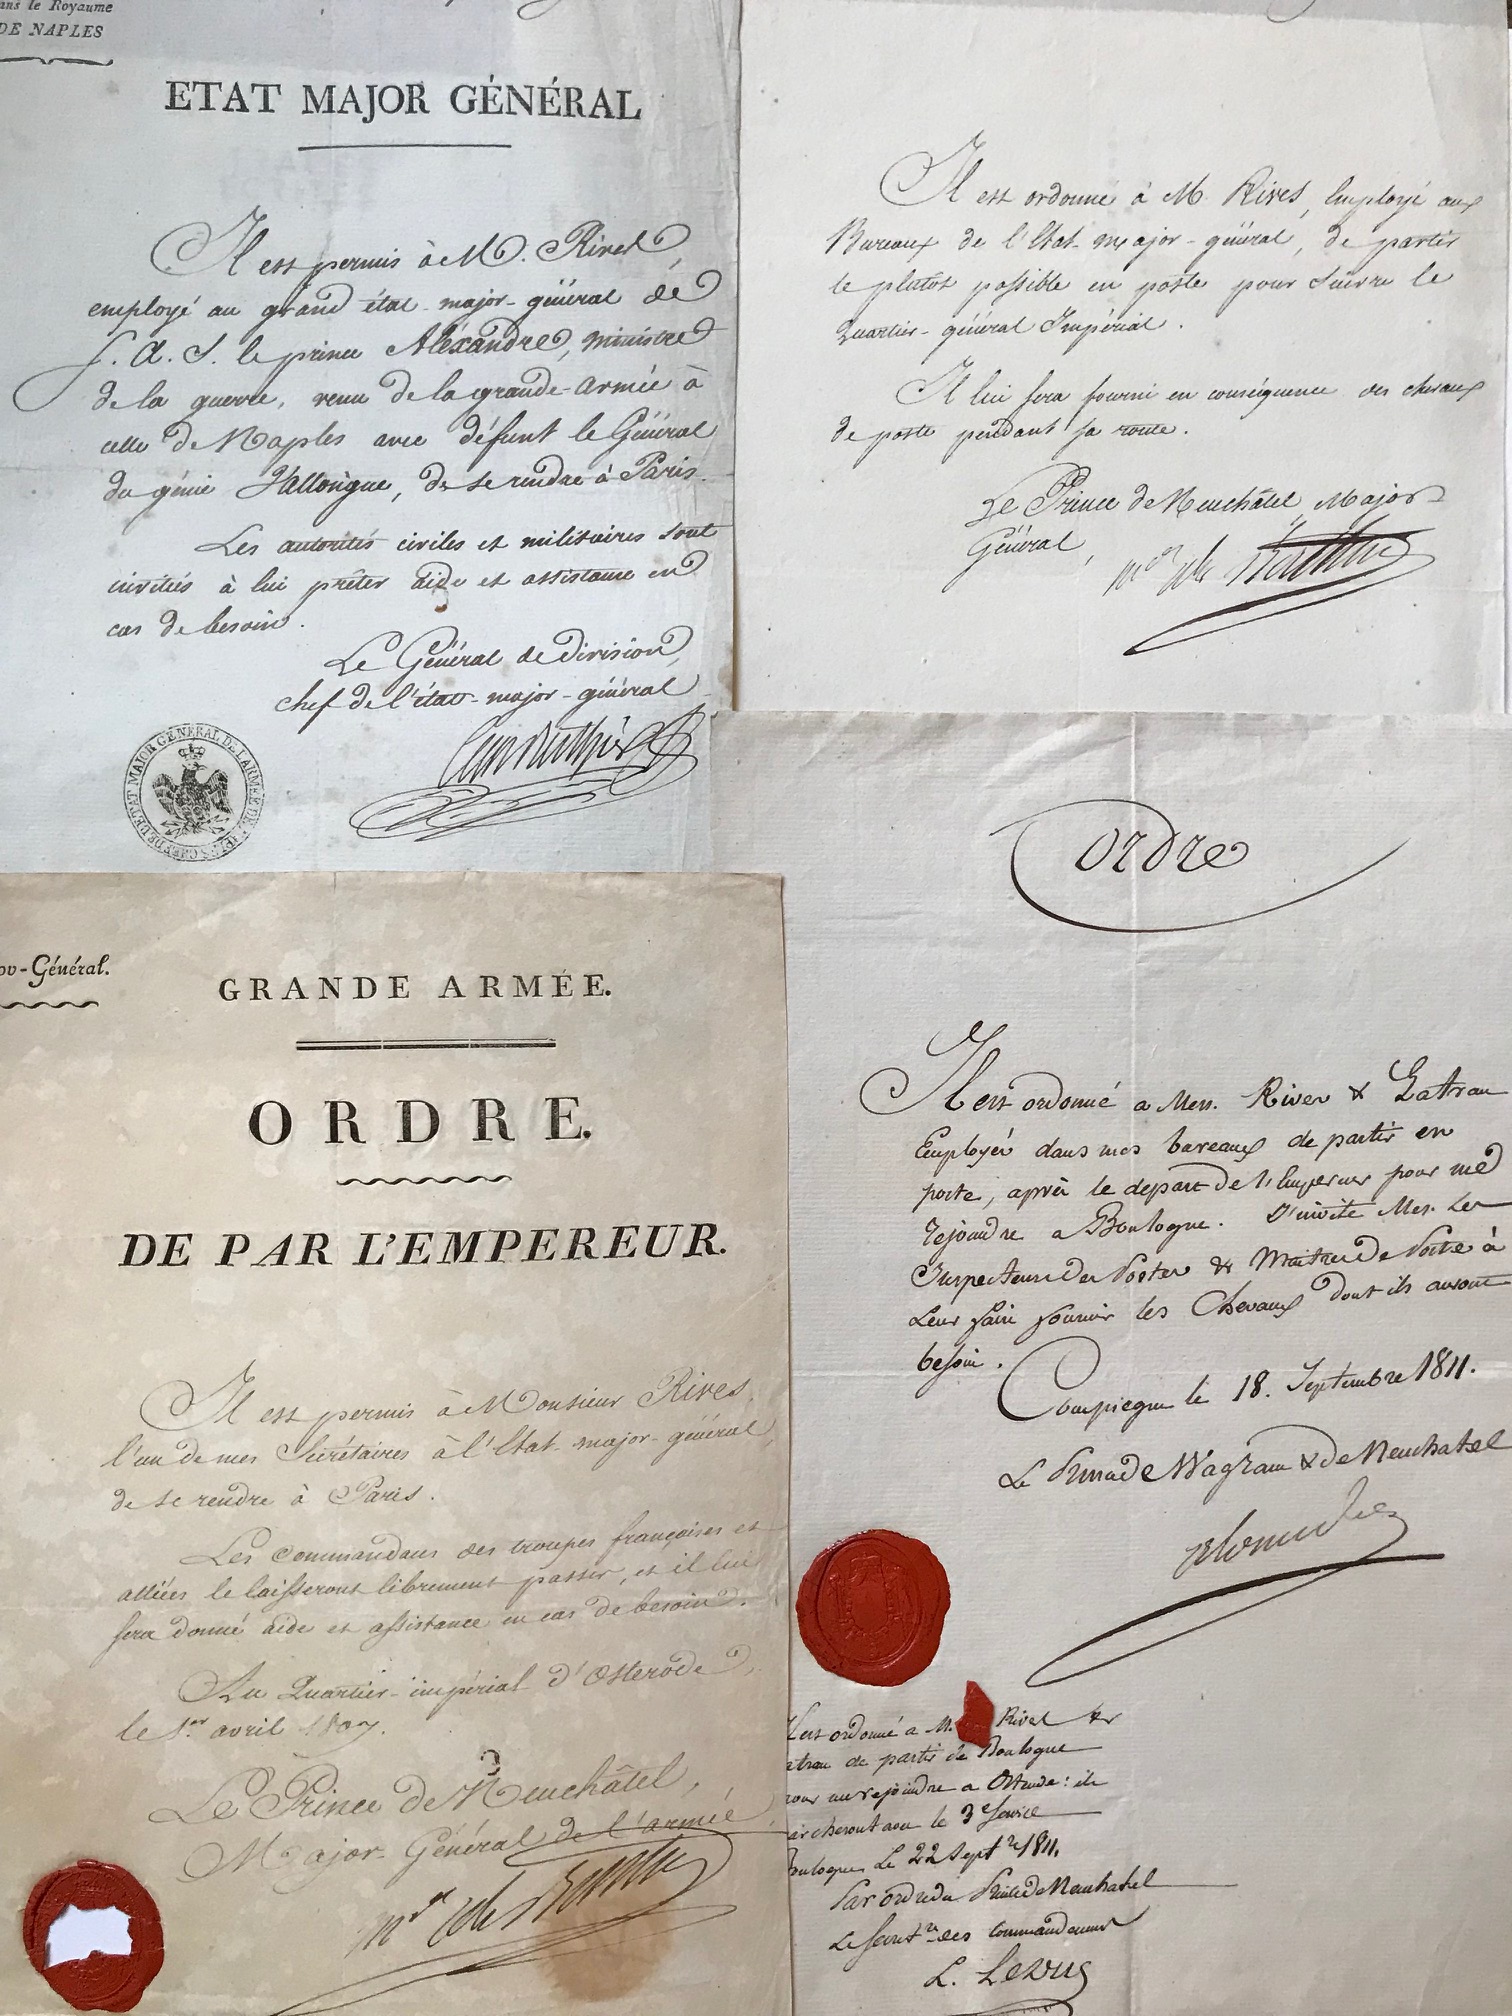 dans le Royaume
DE NAPLES
ETAT MAJOR GÉNÉRAL
Il est permis à M. Rives,
employé au grand état-major-général de
S. A. S. le prince Aléxandre, ministre
de la guerre, venu de la grande-armée à
celle de Naples avec défunt le Général
du génie Vallongue, de se rendre à Paris.
Les autorités civiles et militaires sont
invitées à lui prêter aide et assistance en
cas de besoin.
Le Général de division,
chef de l'état-major-général
CHEF DE L'ETAT MAJOR GENERAL DE L'ARMÉE DE NAPLES
Il est ordonné à M. Rives, Employé aux
Bureaux de l'Etat-major-général, de partir
le plutôt possible en poste pour suivre le
Quartier-général Impérial.
Il lui sera fourni en conséquence des chevaux
de poste pendant sa route.
Le Prince de Neuchâtel, Major
Général,
GRANDE ARMÉE.
ORDRE.
DE PAR L'EMPEREUR.
Il est permis à Monsieur Rives,
l'un de mes Secrétaires à l'Etat-major-général,
de se rendre à Paris.
Les Commandans des troupes françaises et
alliées le laisseront librement passer, et il lui
sera donné aide et assistance en cas de besoin.
Au Quartier-impérial d'Osterode,
le 1.er avril 1807.
Le Prince de Neuchâtel,
Major-Général de l'armée,
Ordre
Il est ordonné a Mess. Rives & Latrau
Employés dans mes bureaux de partir en
poste, après le depart de l'Empereur pour me
rejoindre a Boulogne. J'invite Mrs. Les
Inspecteurs des Postes & Maitres de Poste à
Leur faire fournir les Chevaux dont ils auront
besoin.
Compiegne le 18. Septembre 1811.
Le Prince de Wagram & de Neuchatel
Il est ordonné a M. Rives &
Latrau de partir de Boulogne
pour me rejoindre a Ostende: ils
marcheront avec le 3e service
Boulogne Le 22 Sept.re 1811.
Par ordre du Prince de Neuchatel
Le Secret.re des Commandemens
L. Leduc